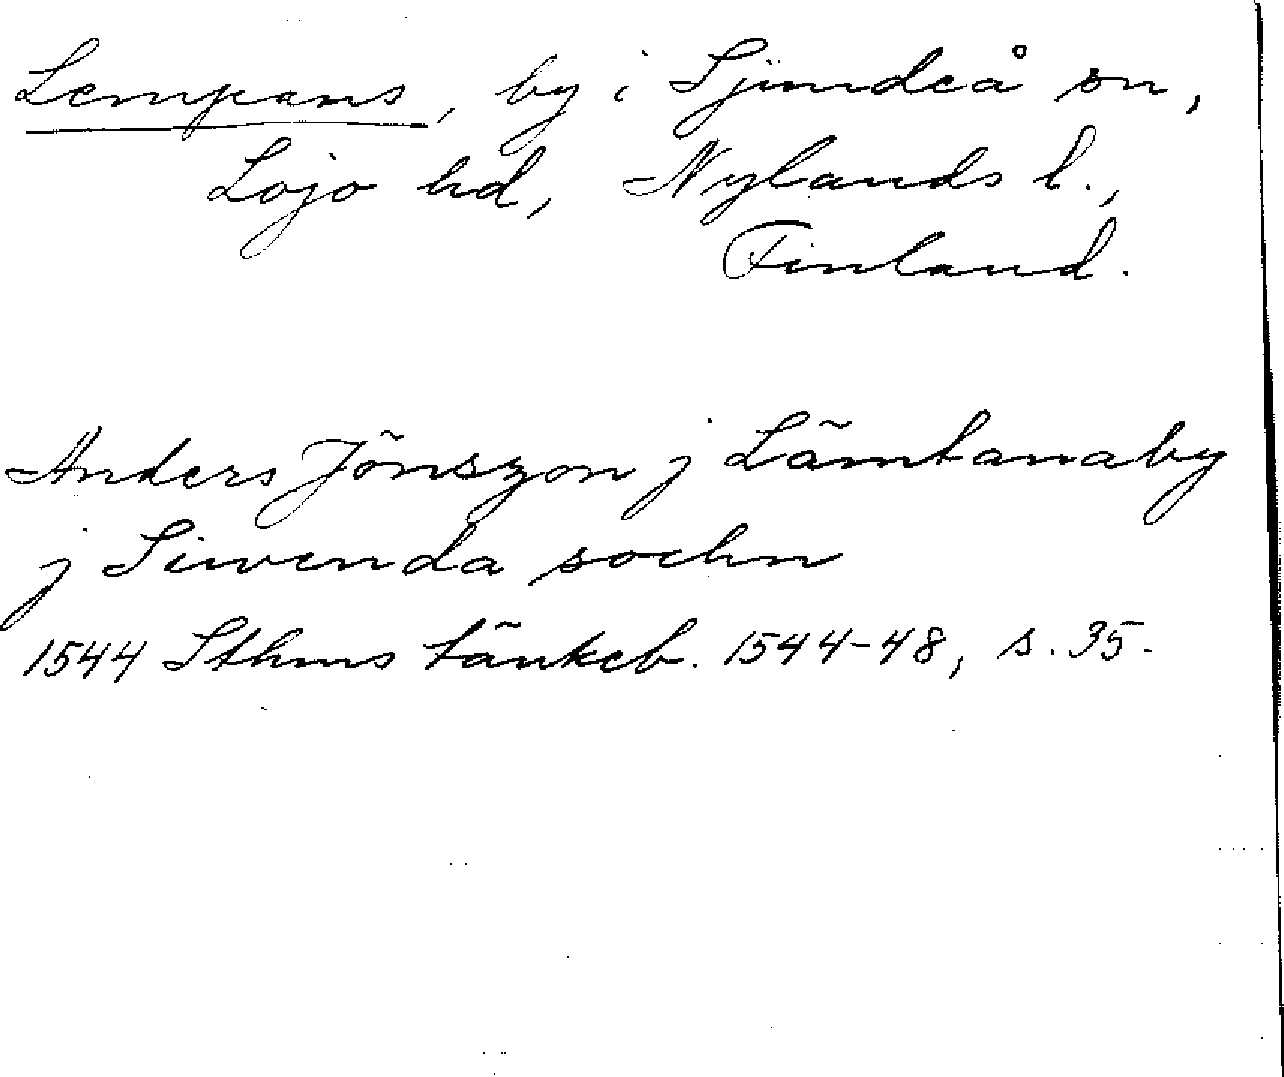 Lempans, by i Sjundeå sn,
Lojo hd, Nylands l.,
Finland.
Anders Jönszon j Lämbanaby
j Siwenda sochn
1544 Sthms tänkeb. 1544-48, s. 35.